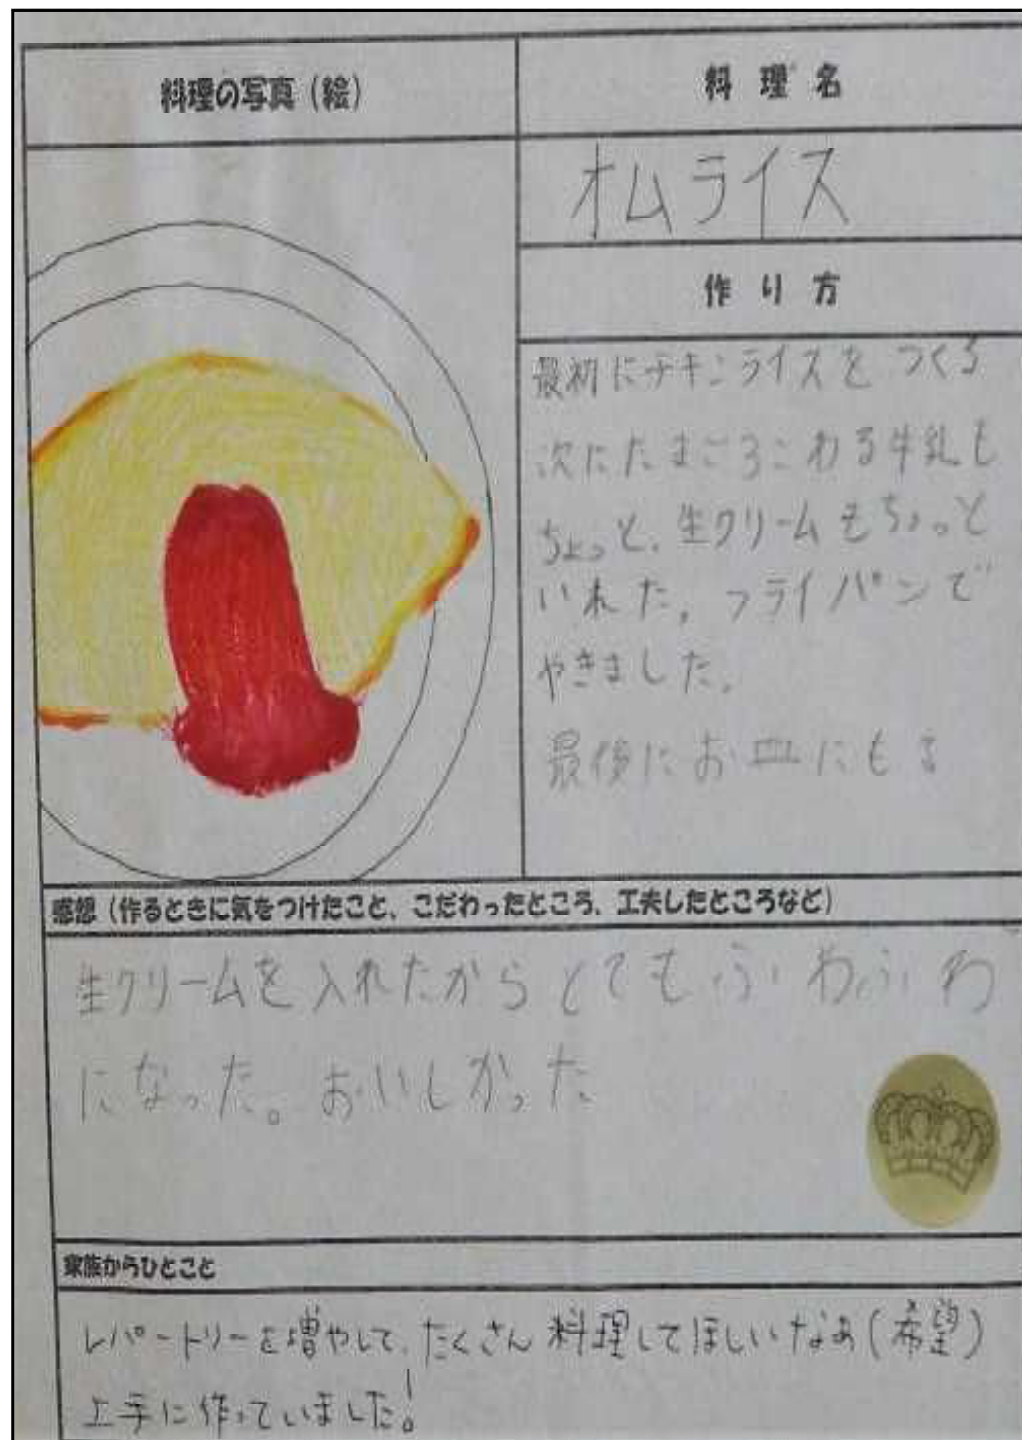 料理の写真（絵）
料理名
オムライス
作り方
最初にチキンライスをつくる
次にたまごろこわる牛乳も
ちょっと、生クリームもちょっと
いれた。フライパンで
やきました。
最後にお皿にもる
感想（作るときに気をつけたこと、こだわったところ、工夫したところなど）
生クリームを入れたからとてもふわふわ
になった。おいしかった
家族からひとこと
レパートリーを増やして、たくさん料理してほしいなあ(希望)
上手に作っていました!